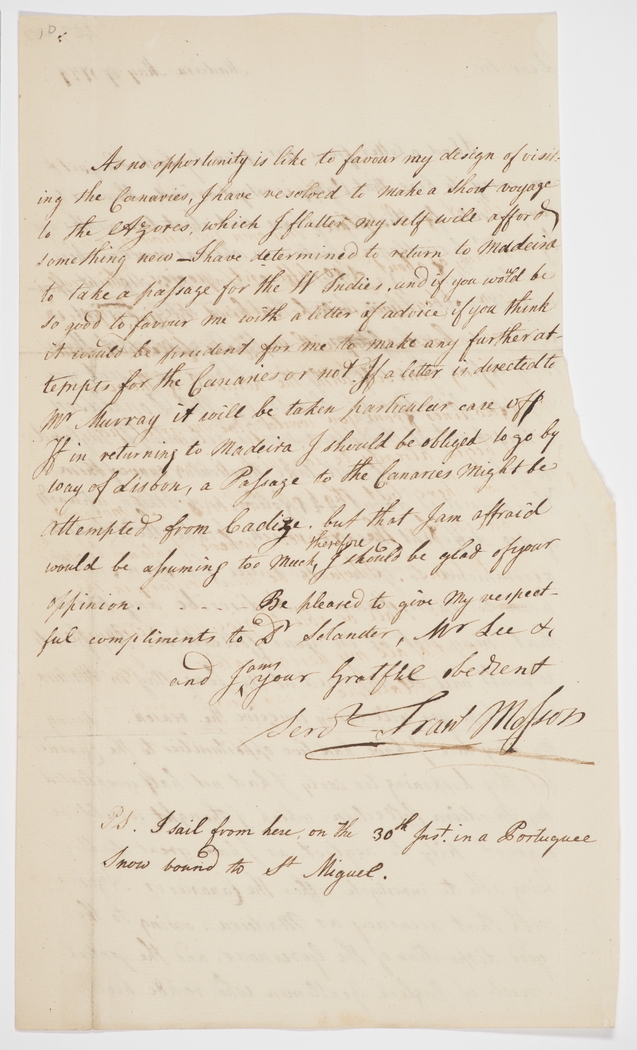 10
As no opportunity is like to favour my design of visit-
ing the Canaries, I have resolved to make a short voyage
to the Azores, which I flatter my self will afford
something new — I have determined to return to Madeira
to take a passage for the W Indies, and if you would be
so good to favour me with a letter of advice if you think
it would be prudent for me to make any further at-
tempts for the Canaries or not. If a letter is directed to
Mr Murray it will be taken particular care off
If in returning to Madeira I should be obliged to go by
way of Lisbon, a Passage to the Canaries might be
attempted from Cadize. but that I am affraid
would be assuming too much, therefore I should be glad of your
oppinion. - - - - - Be pleased to give my respect-
ful compliments to Dr Solander, Mr Lee &c
and I am your Gratful obedient
Servt. Frans Masson
P.S. I sail from here, on the 30th Inst. in a Portuguee
Snow bound to St Miguel.